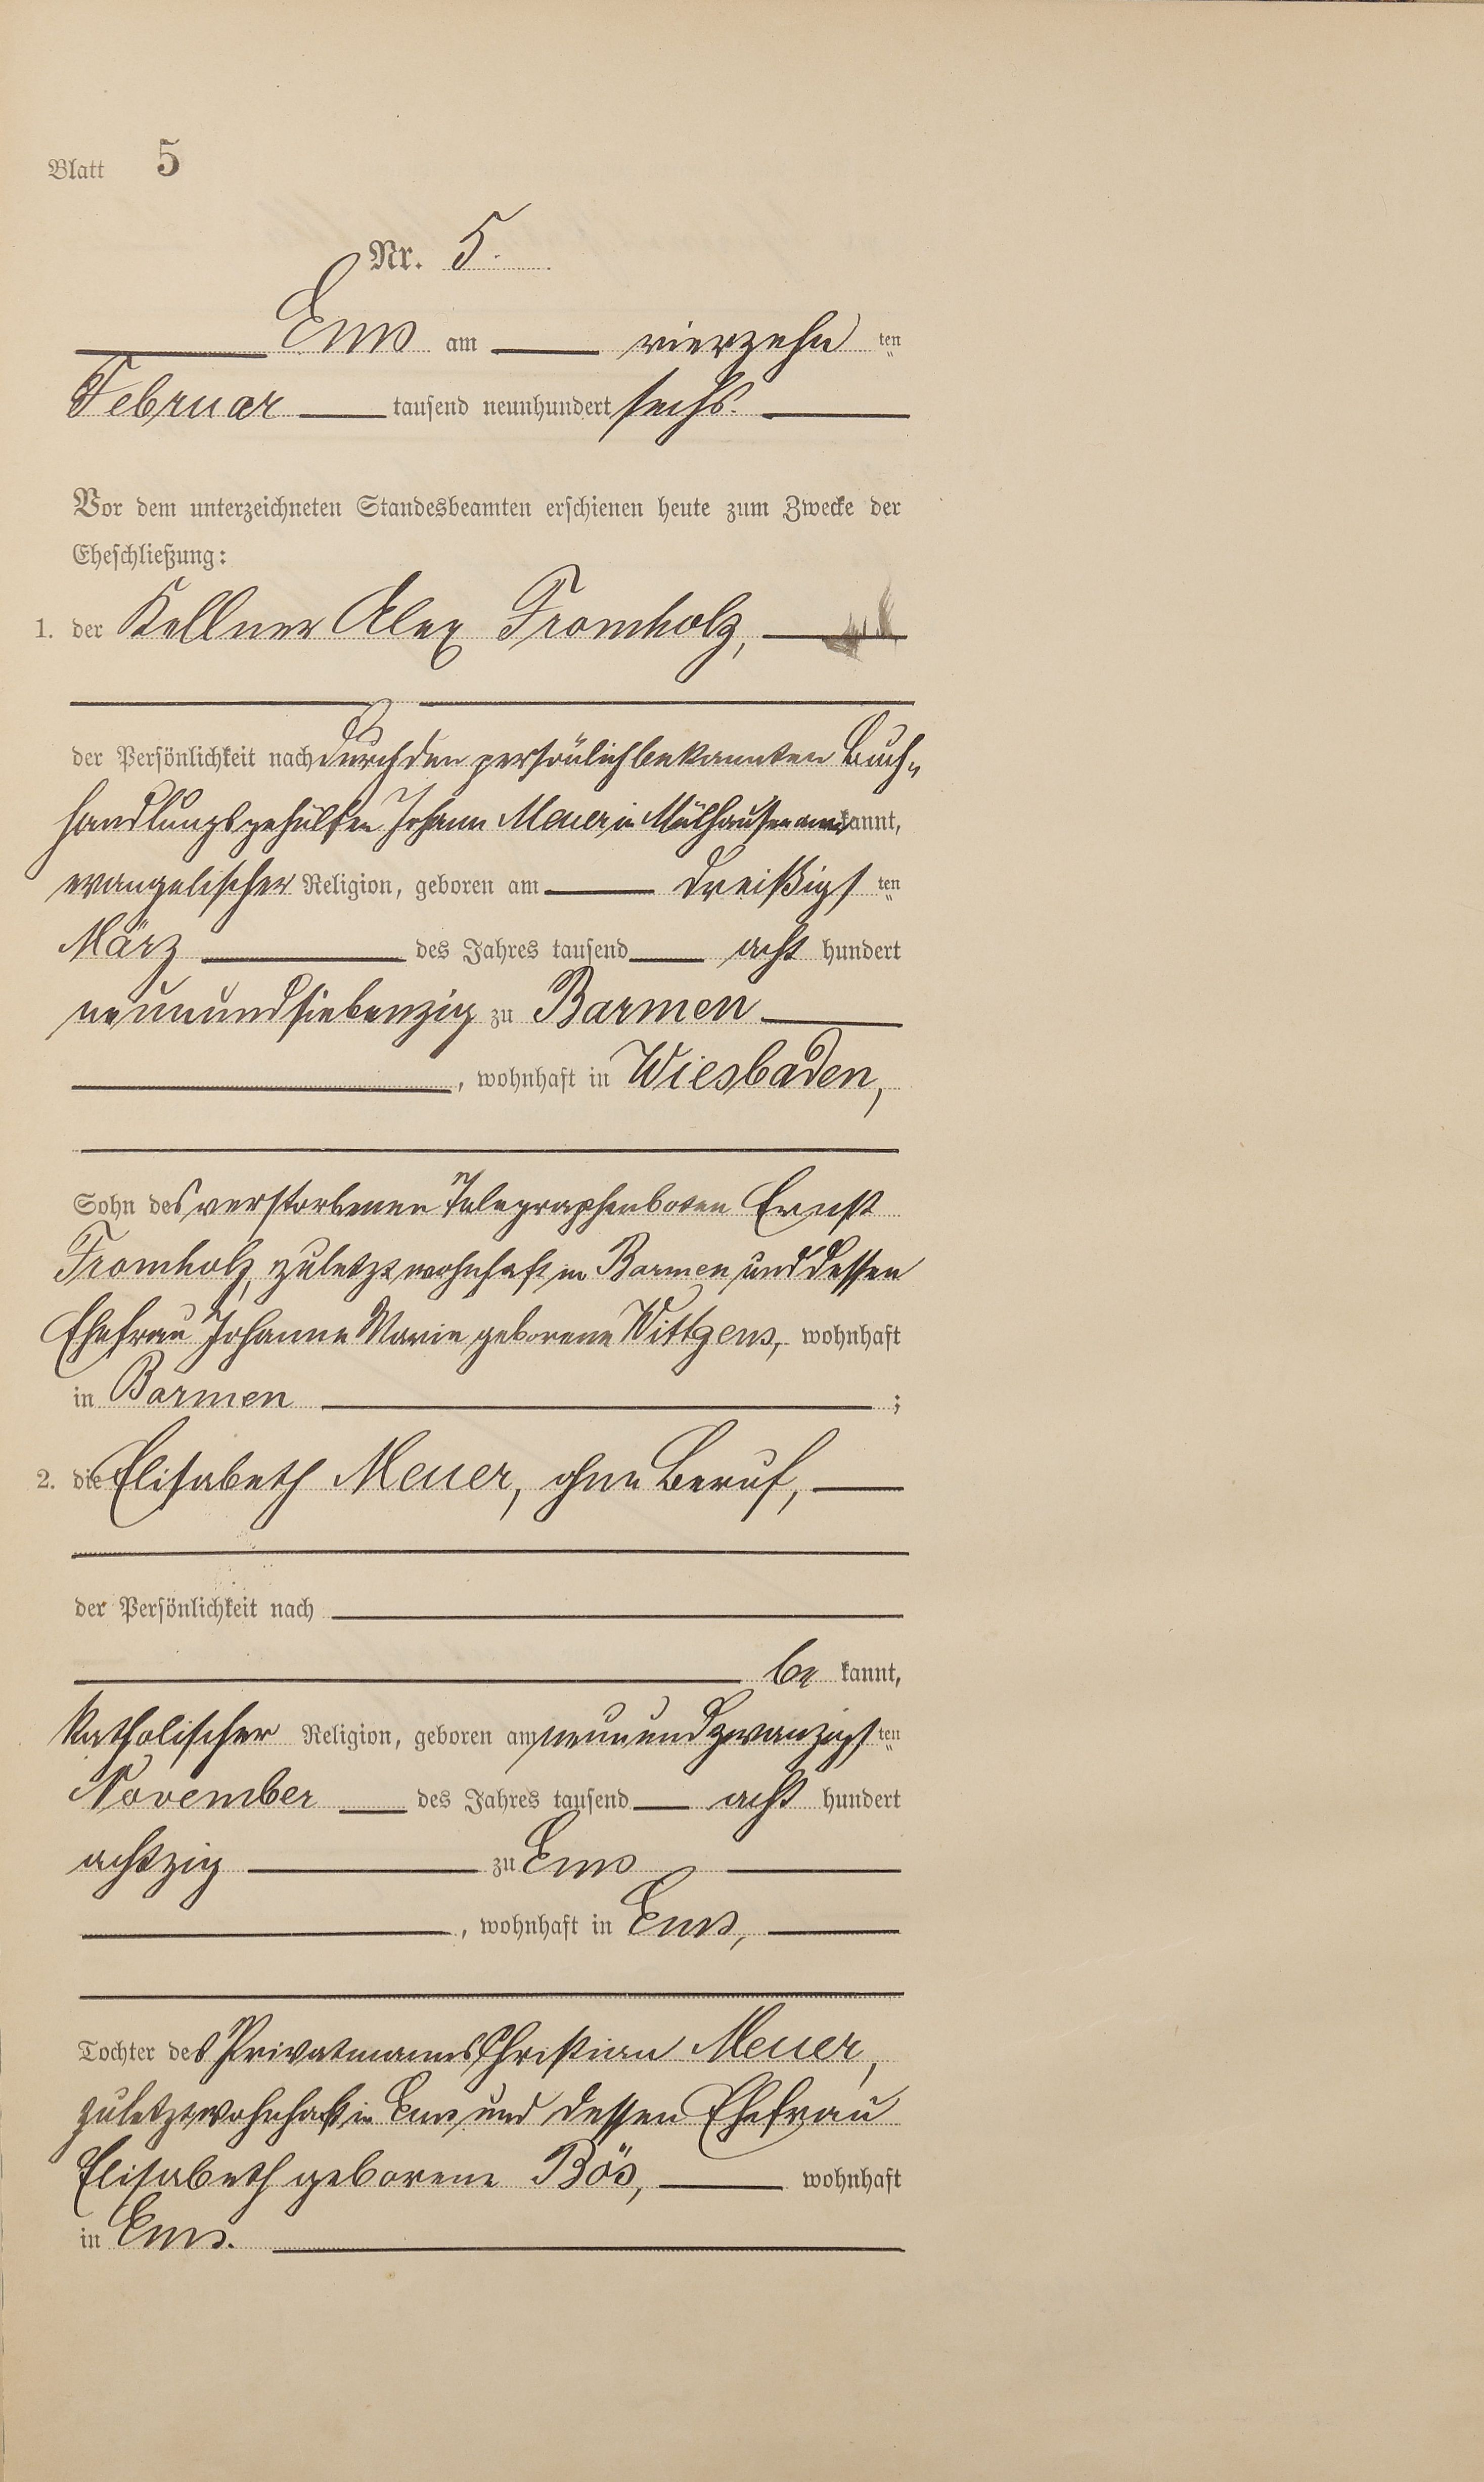 Blatt 5
Nr. 5.
Ems am vierzehn ten
Februar tausend neunhundert sechs.
Vor dem unterzeichneten Standesbeamten erschienen heute zum Zwecke der
Eheschließung:
1. der Kellner Alex Fromholz,
der Persönlichkeit nach durch den persönlich bekannten Buch„
handlungsgehülfen Johann Meuer in Mülhausen anerkannt,
evangelischer Religion, geboren am dreißigs ten
März des Jahres tausend acht hundert
neunundsiebenzig zu Barmen
, wohnhaft in Wiesbaden,
Sohn des verstorbenen Telegraphenboten Ernst
Fromholz, zuletzt wohnhaft in Barmen und dessen
Ehefrau Johanne Marie geborene Wittgens, wohnhaft
in Barmen ;
2. die Elisabeth Meuer, ohne Beruf,
der Persönlichkeit nach
be kannt,
katholischer Religion, geboren am neunundzwanzigs ten
November des Jahres tausend acht hundert
achtzig zu Ems
, wohnhaft in Ems,
Tochter des Privatmanns Christian Meuer,
zuletzt wohnhaft in Ems und dessen Ehefrau
Elisabeth geborene Bös, wohnhaft
in Ems.